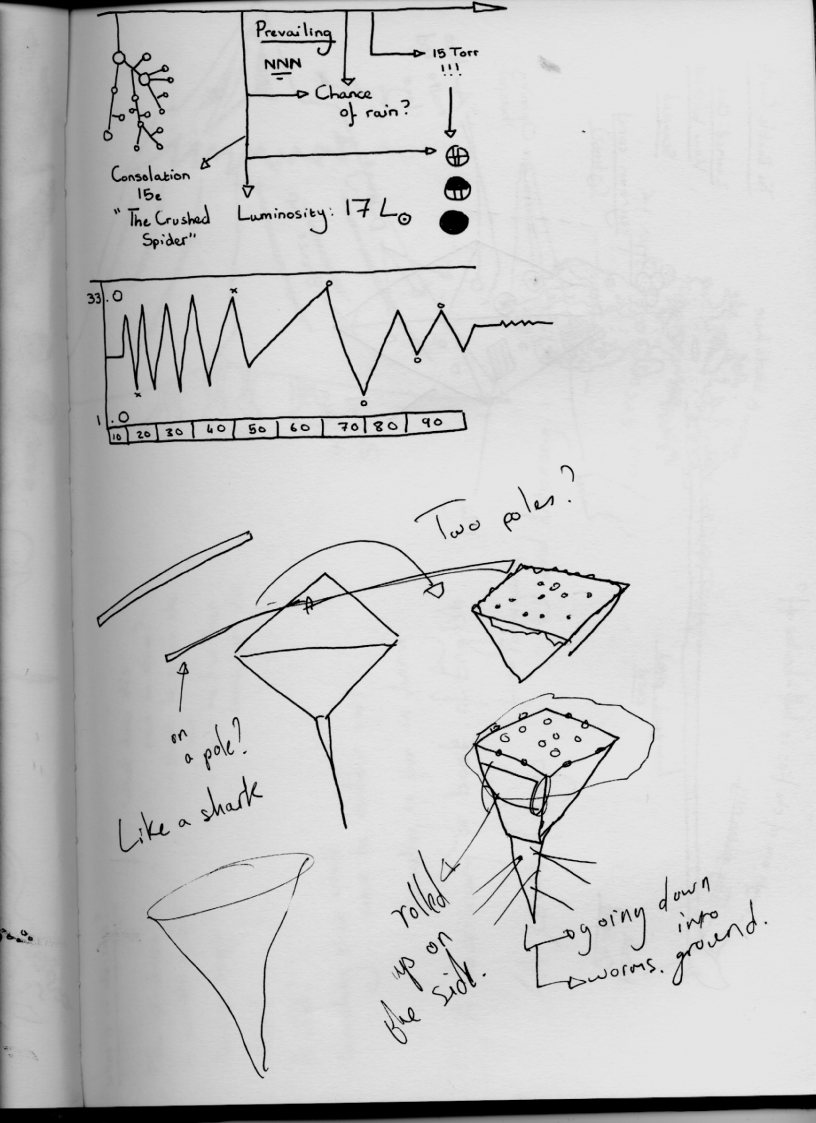 Prevailing
NNN
15 Torr
!!!
Chance
of rain?
Consolation
15e
"The Crushed
Spider"
Luminosity: 17 L⊙
33.0
1.0
10 20 30 40 50 60 70 80 90
Two poles?
on
a pole?
Like a shark
rolled
up on
the side.
going down
into
ground.
worms.